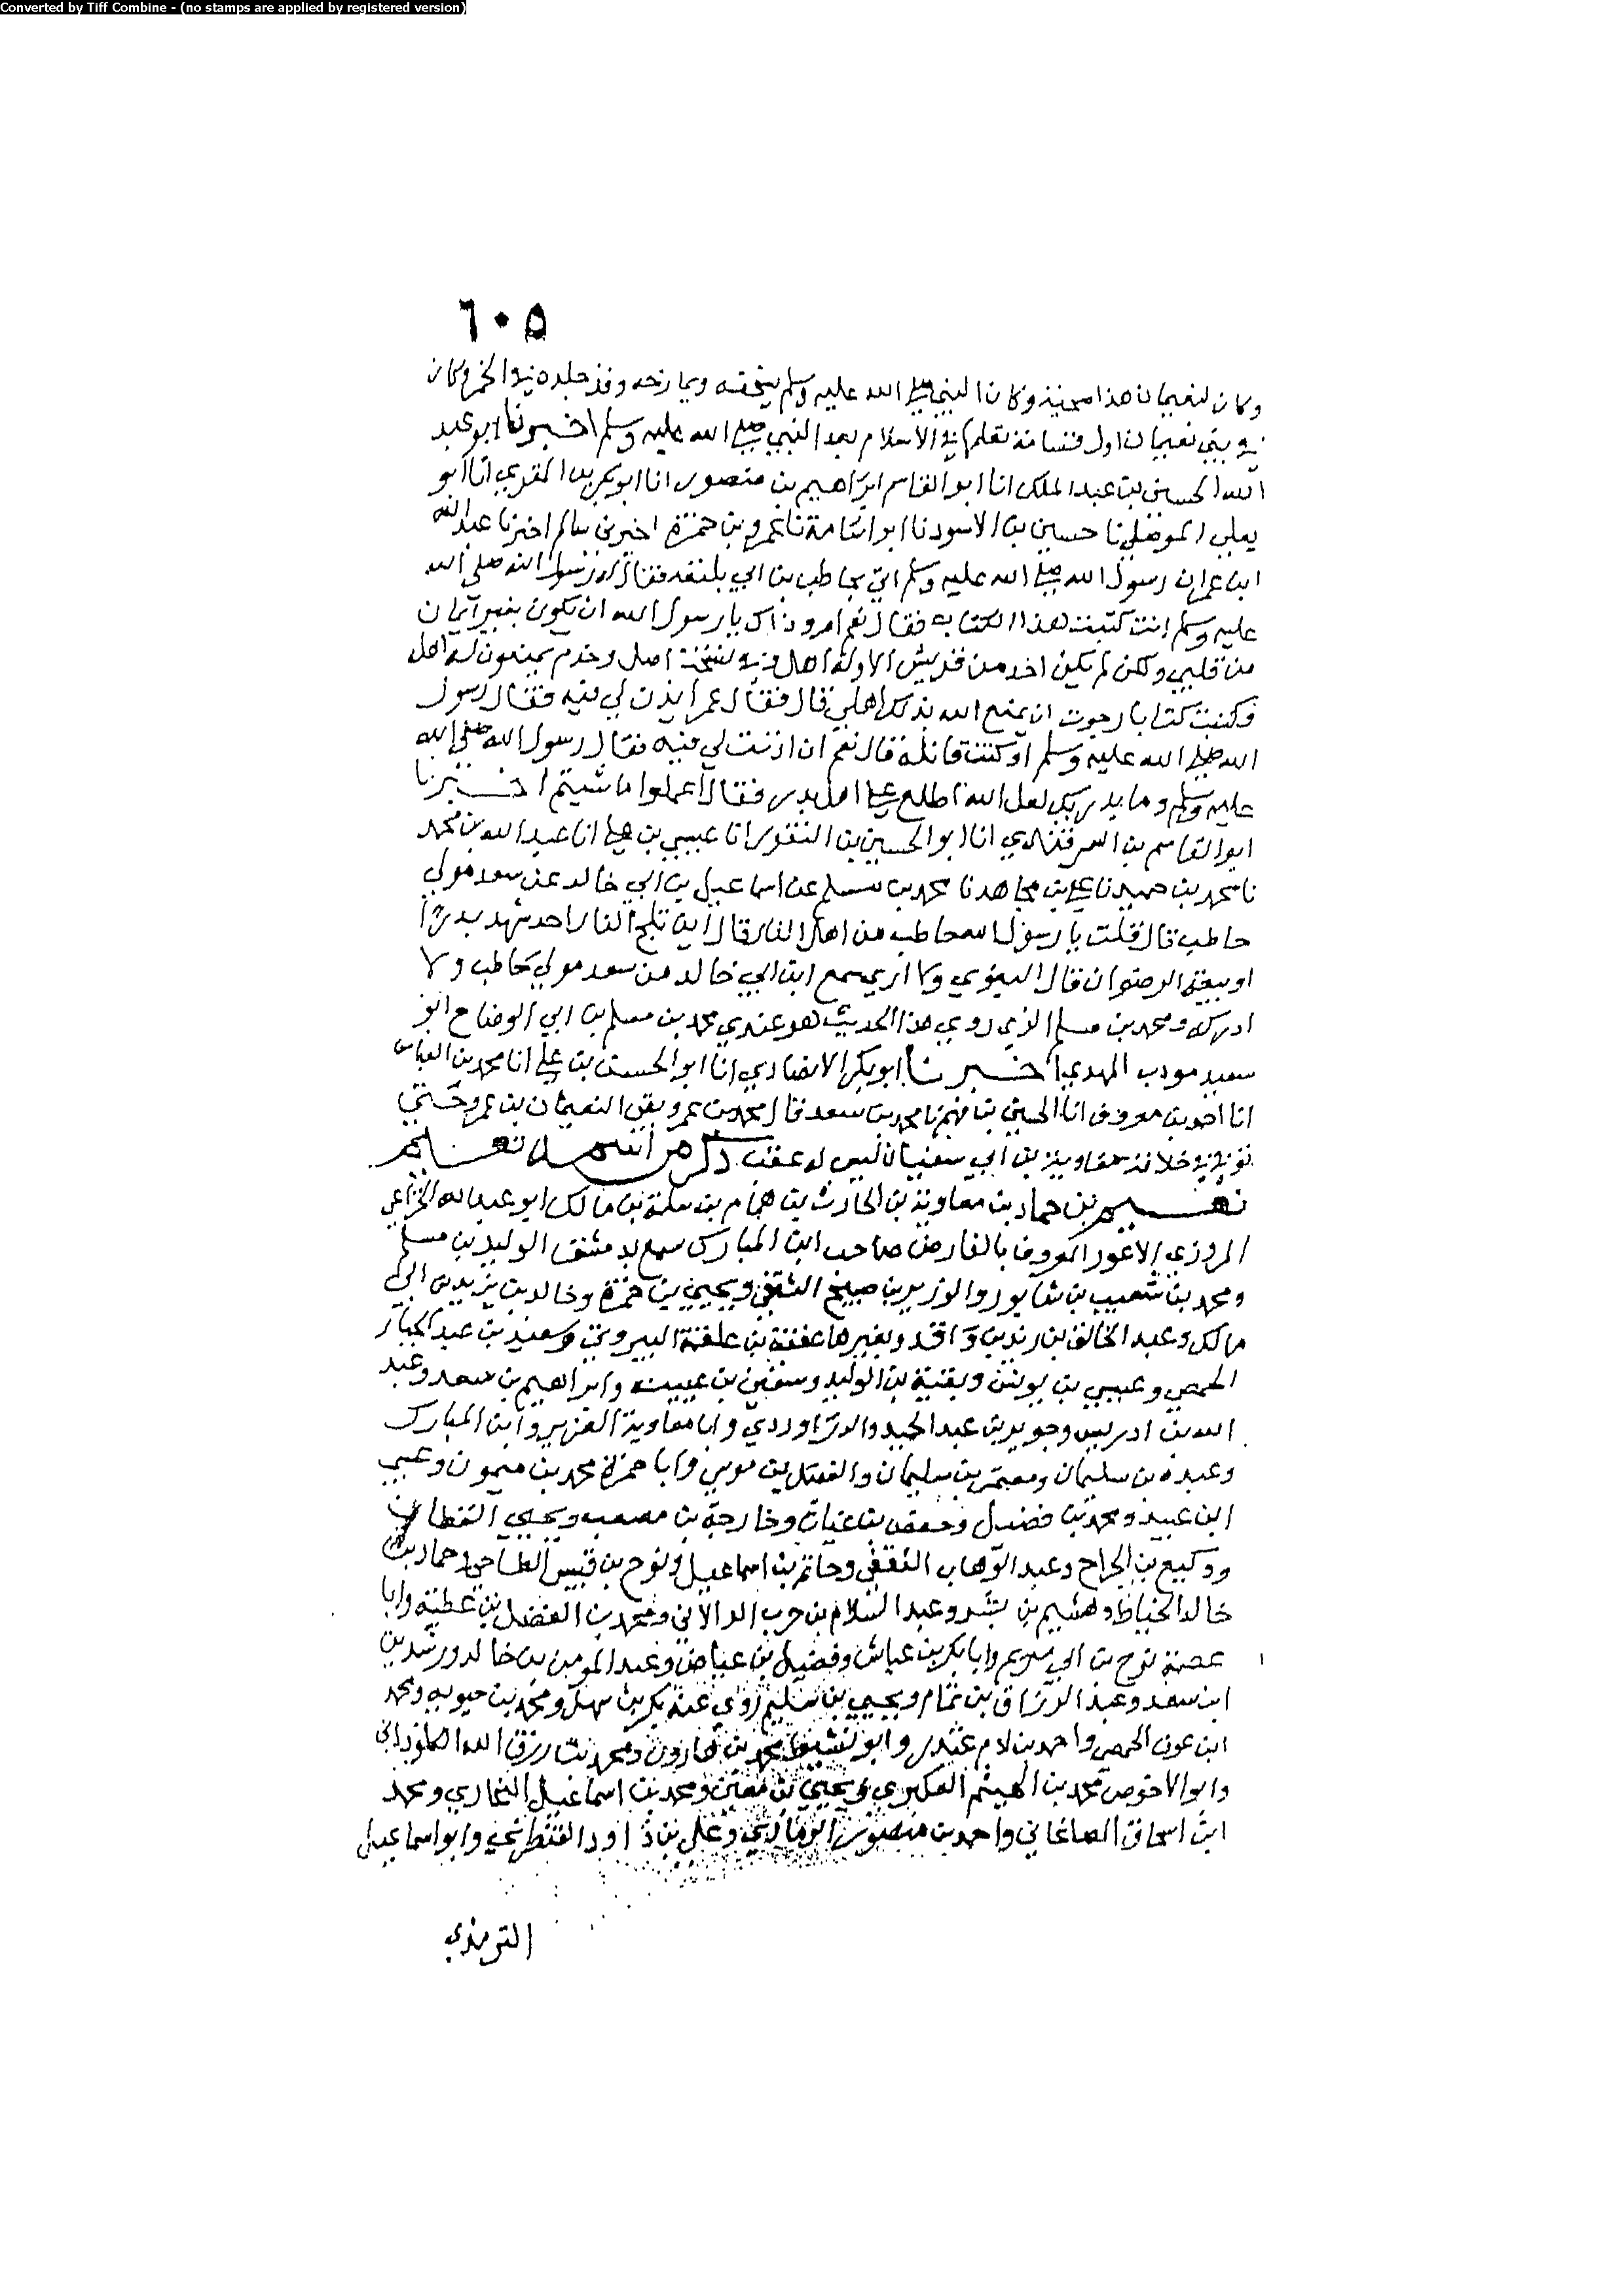 Converted by Tiff Combine - (no stamps are applied by registered version)
٦٠٥
وكان لنعيمان هذا صحبة وكان النبي صلى الله عليه وسلم يضحكه ويمازحه وقد جلده في الخمر وكان
في بيتي نعيمان اول قسامة نعلم في الاسلام بعد النبي صلى الله عليه وسلم اخبرنا ابو عبد
الله الحسين بن عبد الملك انا ابو القاسم ابراهيم بن منصور انا ابو بكر بن المقري انا ابو
يعلى الموصلي نا حسين بن الاسود نا ابو اسامة نا عمرو بن حمزة اخبرني سالم اخبرنا عبد الله
ابن عمر ان رسول الله صلى الله عليه وسلم اتي بحاطب بن ابي بلتعة فقال له رسول الله صلى الله
عليه وسلم انت كتبت هذا الكتاب فقال نعم اما وذاك يا رسول الله ان يكون بغير ايمان
من قلبي ولكن لم يكن احد من قريش الا وله اهل وخدم يمنعون له اهله
وكتبت كتابا رجوت ان يمنع الله بذلك اهلي قال فقال عمر ايذن لي فيه فقال رسول
الله صلى الله عليه وسلم او كنت قاتله قال نعم ان اذنت لي فيه فقال رسول الله صلى الله
عليه وسلم وما يدريك لعل الله اطلع على اهل بدر فقال اعملوا ما شيتم اخبرنا
ابو القاسم بن السمرقندي انا ابو الحسين بن النقور انا عيسى بن علي انا عبد الله بن محمد
نا محمد بن حميد نا علي بن مجاهد نا محمد بن مسلم عن اسماعيل بن ابي خالد عن سعد مولى
حاطب قال قلت يا رسول الله حاطب من اهل النار قال لن يلج النار احد شهد بدرا
او بيعة الرضوان قال البغوي ولا ارى سمع ابن ابي خالد من سعد مولى حاطب ولا
ادركه ومحمد بن مسلم الذي روى هذا الحديث هو عندي محمد بن مسلم بن ابي الوضاح ابو
سعيد مودب المهدي اخبرنا ابو بكر الانصاري انا ابو الحسن بن علي انا محمد بن العباس
انا احمد بن معروف انا الحسين بن فهم نا محمد بن سعد قال محمد بن عمر وبقي النعيمان بن عمرو حتى
توفي في خلافة معاوية بن ابي سفيان ليس له عقب ذكر من اسمه نعيم
نعيم بن حماد بن معاوية بن الحارث بن همام بن سلمة بن مالك ابو عبد الله الخزاعي
المروزي الاعور المعروف بالفارض صاحب ابن المبارك سمع بدمشق الوليد بن مسلم
ومحمد بن شعيب بن شابور والوزير بن صبيح الثقفي ويحيى بن حمزة وخالد بن يزيد بن ابي
مالك وعبد الخالق بن زيد بن واقد وبغيرها عقبة بن علقمة البيروتي وسعيد بن عبد الجبار
الحمصي وعيسى بن يونس وبقية بن الوليد وسفين بن عيينه وابراهيم بن سعد وعبد
الله بن ادريس وجرير بن عبد الحميد والدراوردي وابا معاوية الضرير وابن المبارك
وعبده بن سليمان ومعتمر بن سليمان والفضل بن موسى وابا حمزة محمد بن ميمون وعيسى
ابن عبيد ومحمد بن فضيل وحفص بن غياث وخارجة بن مصعب ويحيى القطان
ووكيع بن الجراح وعبد الوهاب الثقفي وحاتم بن اسماعيل ونوح بن قيس الطاحي وحماد بن
خالد الخياط وهشيم بن بشير وعبد السلام بن حرب الدالاني ومحمد بن الفضل بن عطية وابا
عصمة نوح بن ابي مريم وابا بكر بن عياش وفضيل بن عياض وعبد المومن بن خالد ورشدين
ابن سعد وعبد الرزاق بن همام ويحيى بن سليم روى عنه بكر بن سهل ومحمد بن حيويه ومحمد
ابن عوف الحمصي واحمد بن ادم غندر وابو نشيط محمد بن هارون ومحمد بن رزق الله الكلوذاني
وابو الاحوص محمد بن الهيثم العكبري ويحيى بن معين ومحمد بن اسماعيل البخاري ومحمد
ابن اسحاق الصاغاني واحمد بن منصور الرمادي وعلي بن داود القنطري وابو اسماعيل
الترمذي